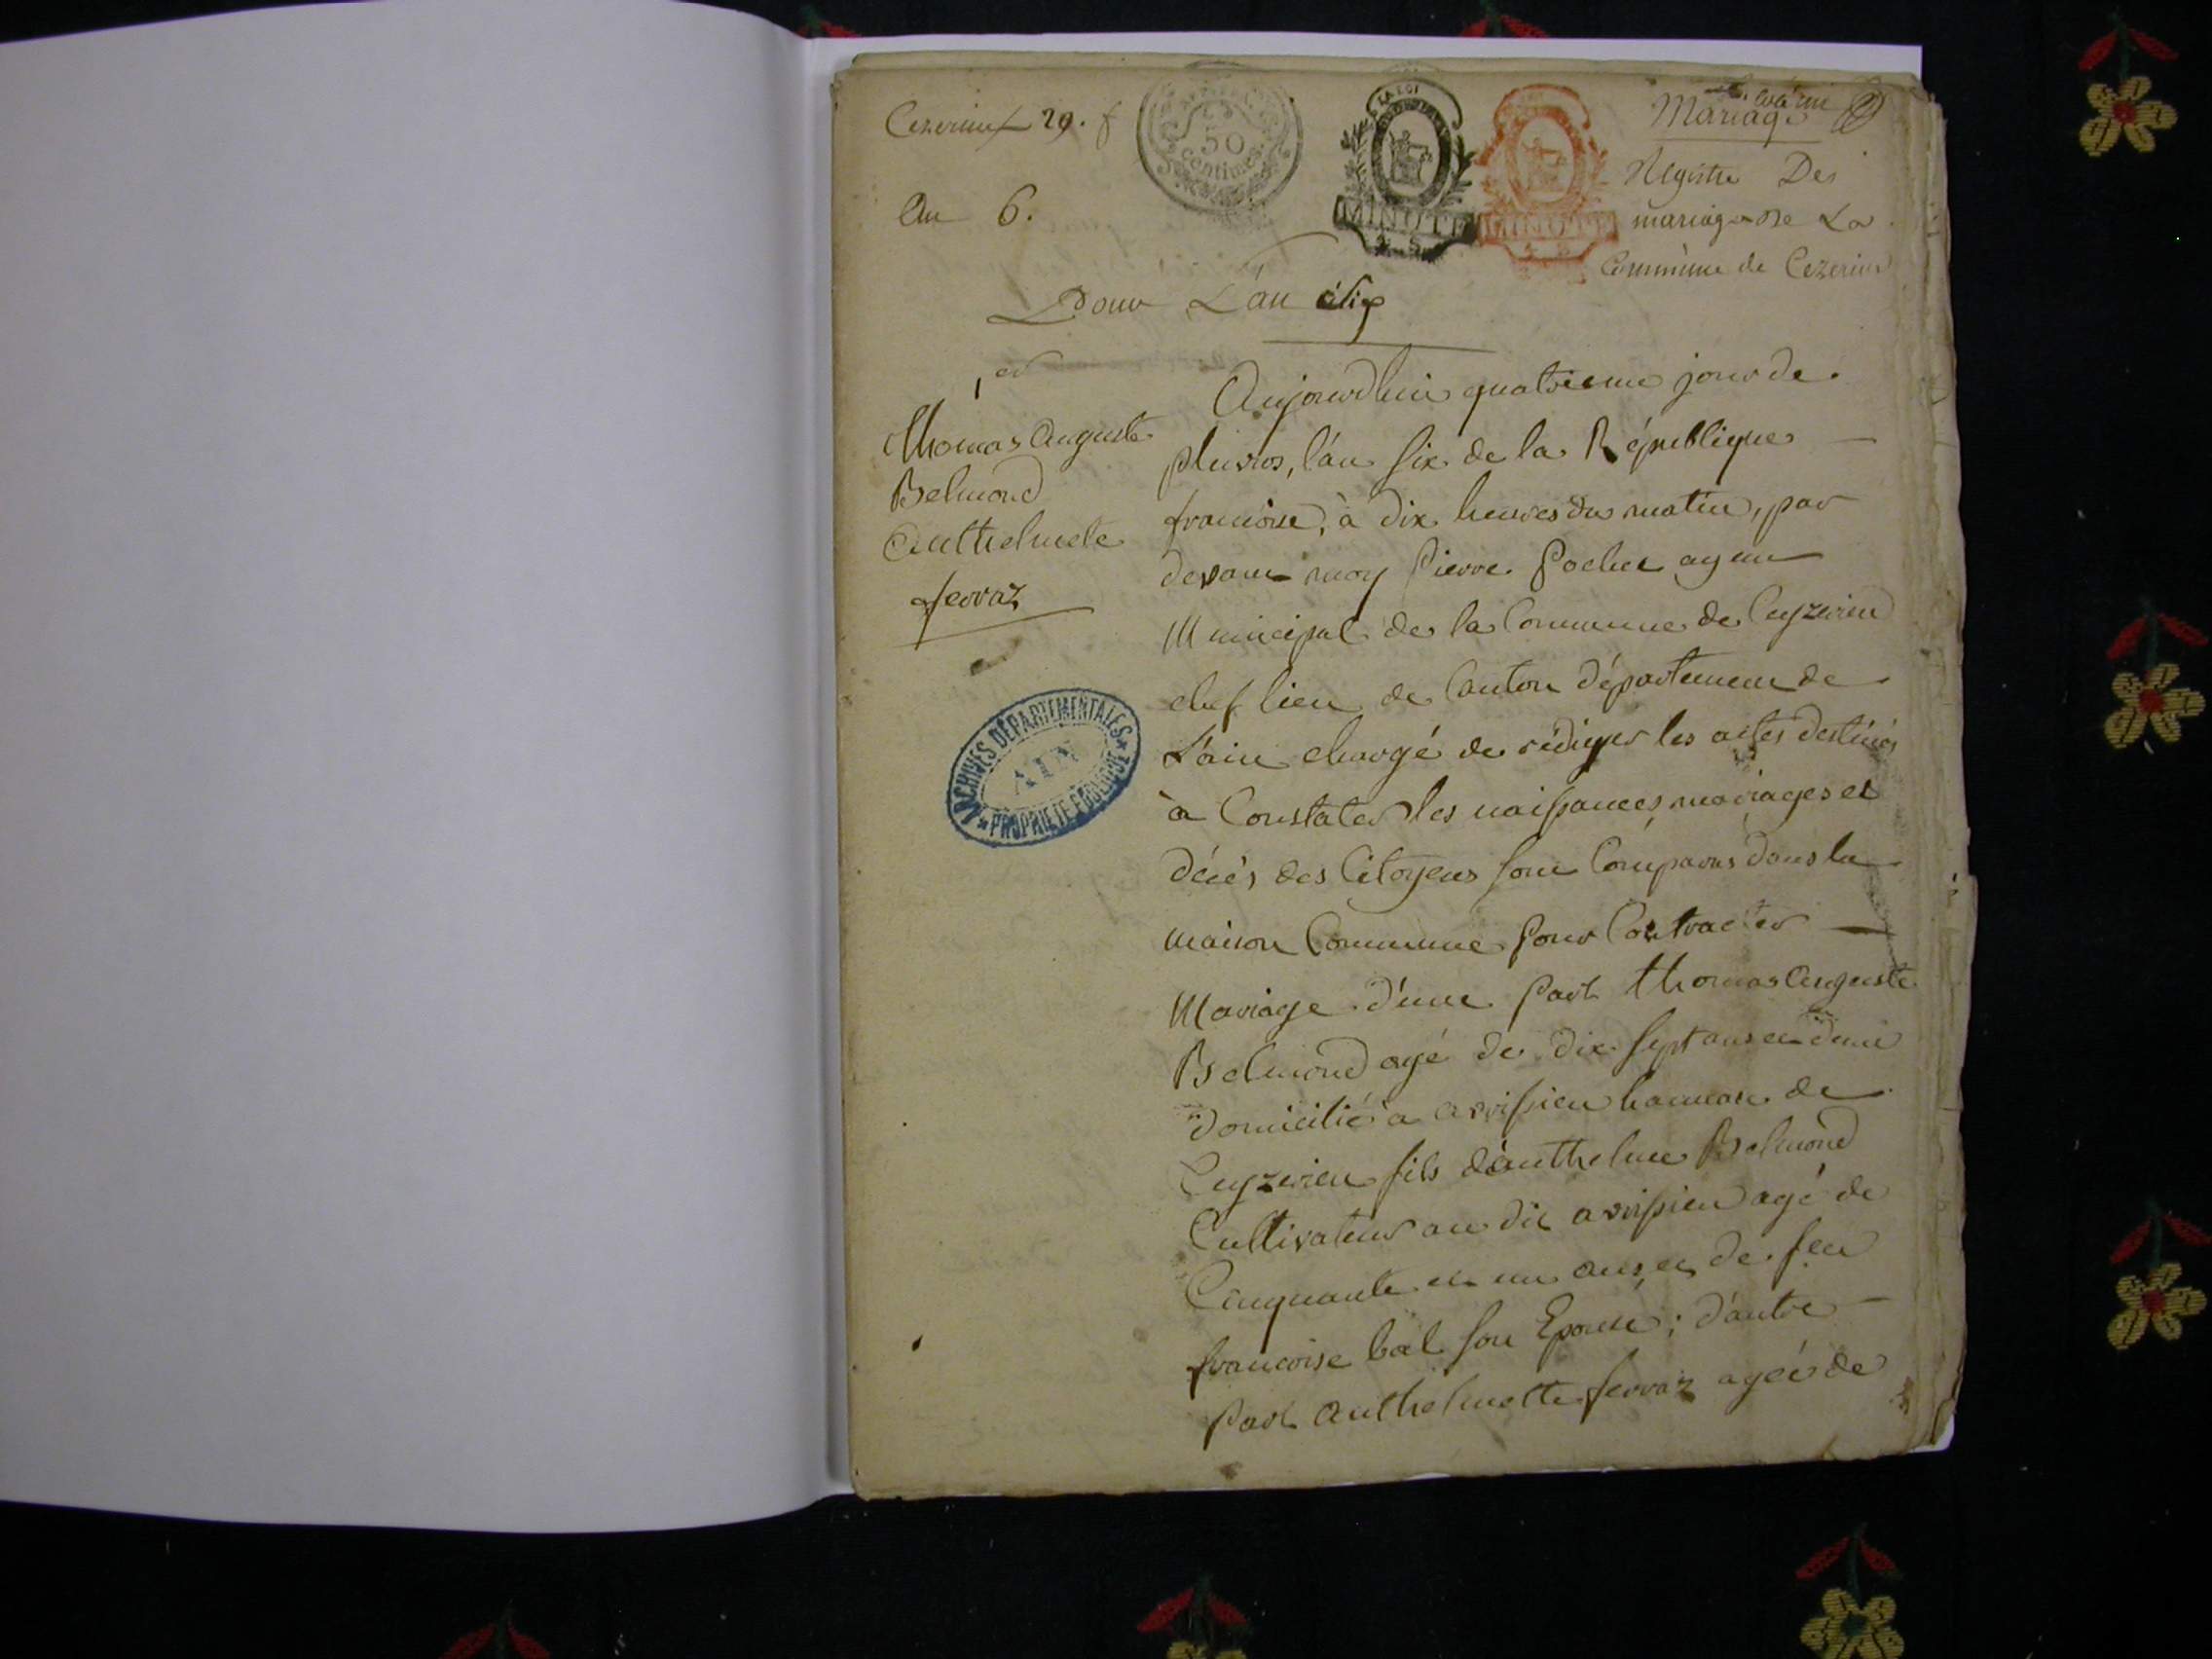 Cezerieux 29. f
An 6.
50
centimes
LA LOI
MINUTE
MINUTE
Mariage
Registre Des
mariage de La
Commune de Cezerieu
Pour L'an six
1er
Thomas Auguste
Belmond
Anthelmete
ferraz
ARCHIVES DÉPARTEMENTALES
AIN
PROPRIÉTÉ PUBLIQUE
Aujourdhui quatrieme jour de
pluvios, l'an six de la République
francoise, à dix heures du matin, par
devant moy Pierre Pochet agent
Municipal de la Commune de Ceyzerieu
chef lieu de Canton département de
L'ain chargé de rédiger les actes destinés
à Constater les naissances, mariages et
décés des Citoyens sont Comparus dans la
maison Commune pour Contracter
Mariage d'une part thomas Auguste
Belmond agé de dix sept ans et demi
domicilié a avrissieu hameau de
Ceyzerieu fils d'anthelme Belmond
Cultivateur au dit avrissieu agé de
Cinquante et un ans, et de feu
francoise bal son Epouse ; d'autre
part anthelmette ferraz agée de